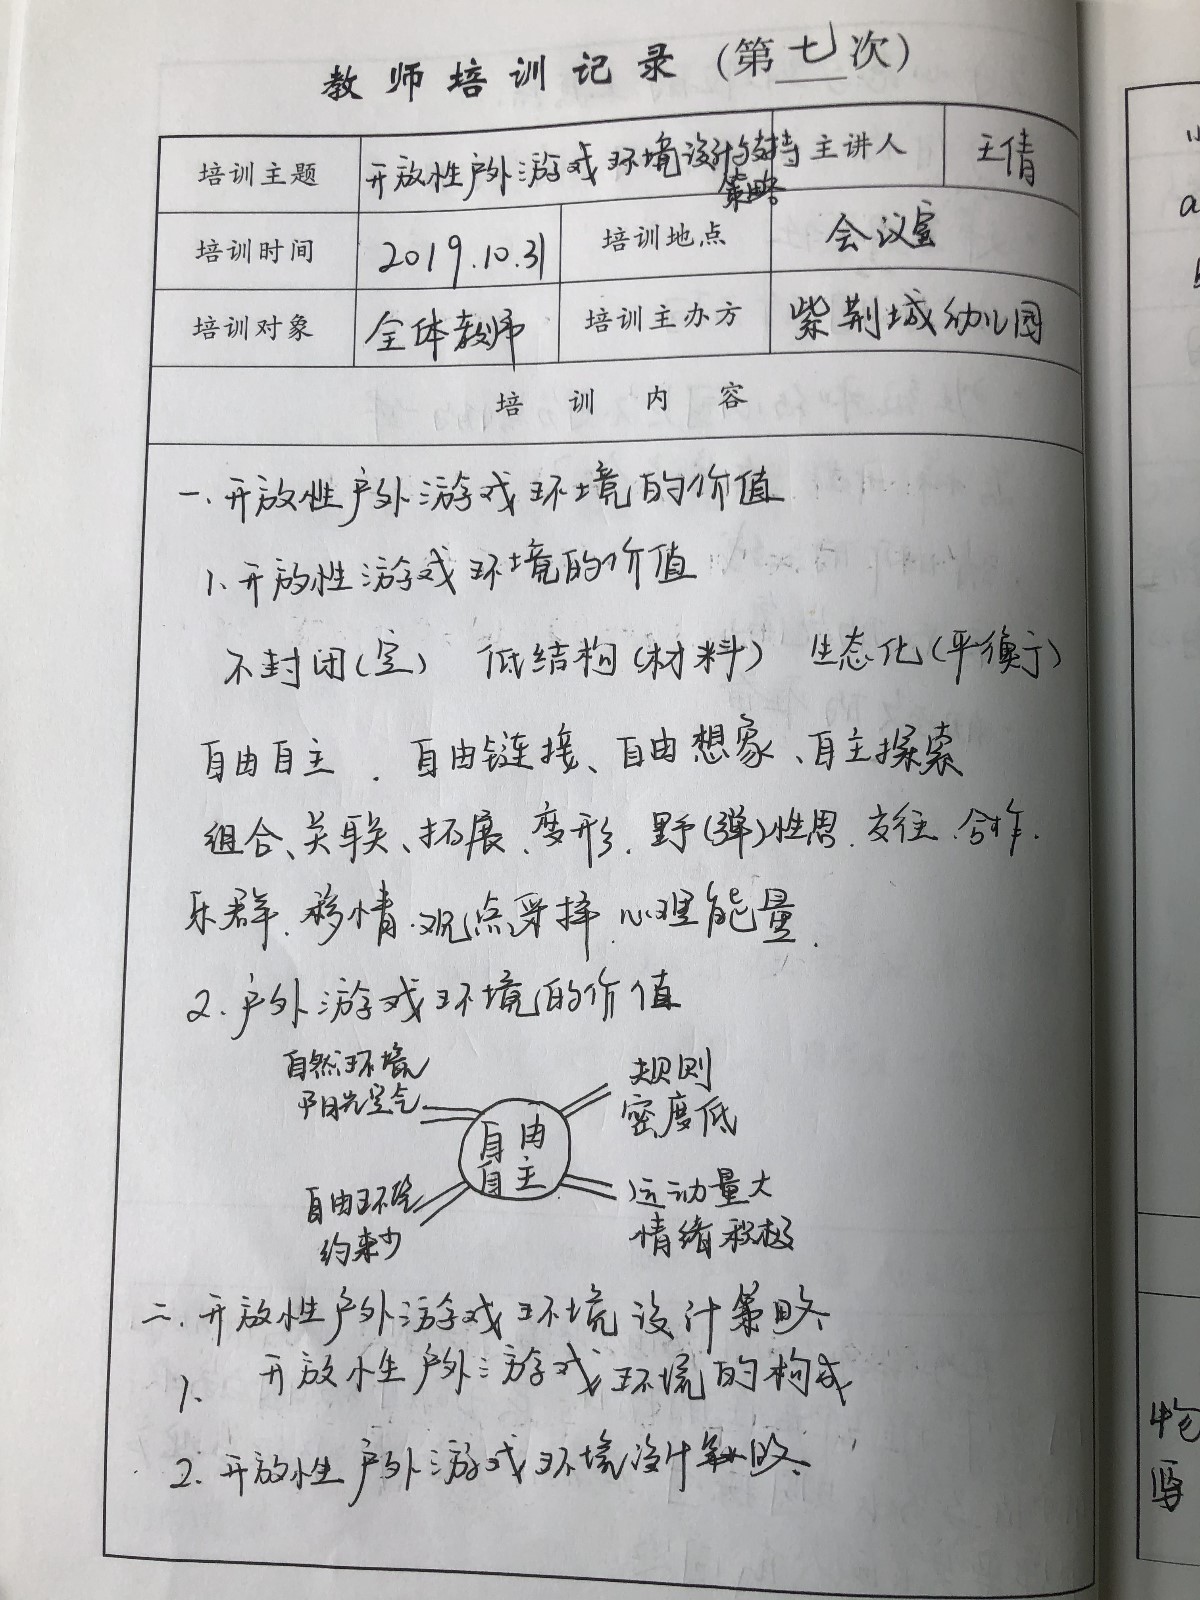 教师培训记录(第七次)
培训主题 开放性户外游戏环境设计与支持策略 主讲人 王倩
培训时间 2019.10.31 培训地点 会议室
培训对象 全体教师 培训主办方 紫荆城幼儿园
培训内容
一.开放性户外游戏环境的价值
1.开放性游戏环境的价值
不封闭(定) 低结构(材料) 生态化(平衡)
自由自主.自由链接、自由想象、自主探索
组合、关联、拓展、变形.野(弹)性思.交往.合作.
乐群.移情.观点采择.心理能量.
2.户外游戏环境的价值
自然环境
阳光空气
规则
密度低
自由
自主
自由环境
约束少
运动量大
情绪积极
二.开放性户外游戏环境设计策略
1.开放性户外游戏环境的构成
2.开放性户外游戏环境设计策略